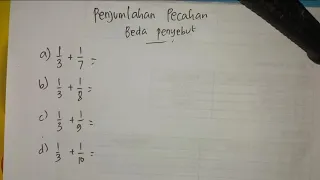 Penjumlahan Pecahan
Beda Penyebut
a) 1/3 + 1/7 =
b) 1/3 + 1/8 =
c) 1/3 + 1/9 =
d) 1/3 + 1/10 =